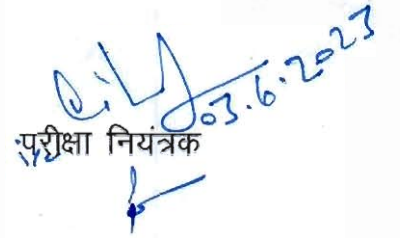 03.6.2023
परीक्षा नियंत्रक